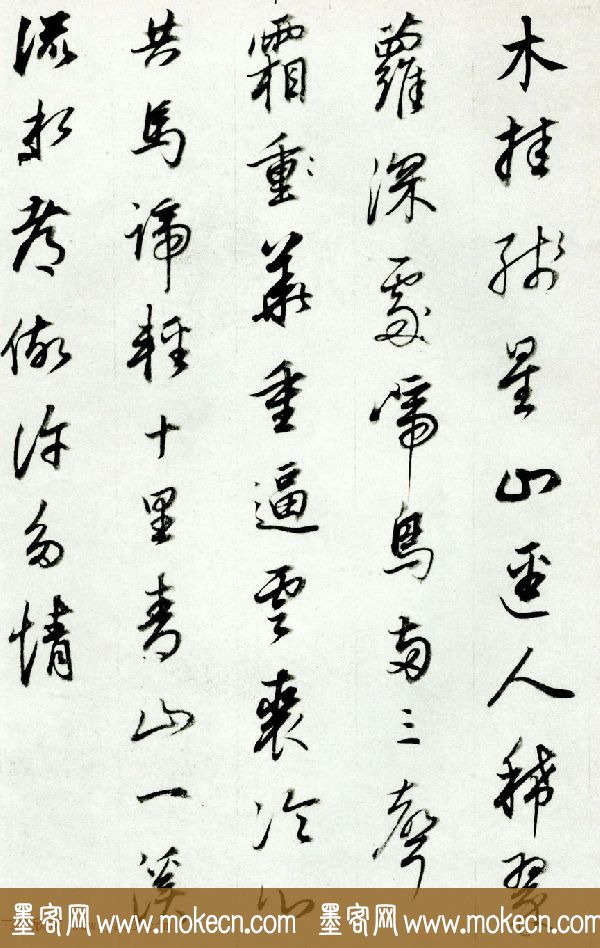 木挂殘星山逕人稀翠
蘿深處啼鳥兩三聲
霜重華重逼雲裘冷心
共馬蹄輕十里青山一溪
流水都做許多情
墨客网 www.mokecn.com 墨客网 www.mokecn.com